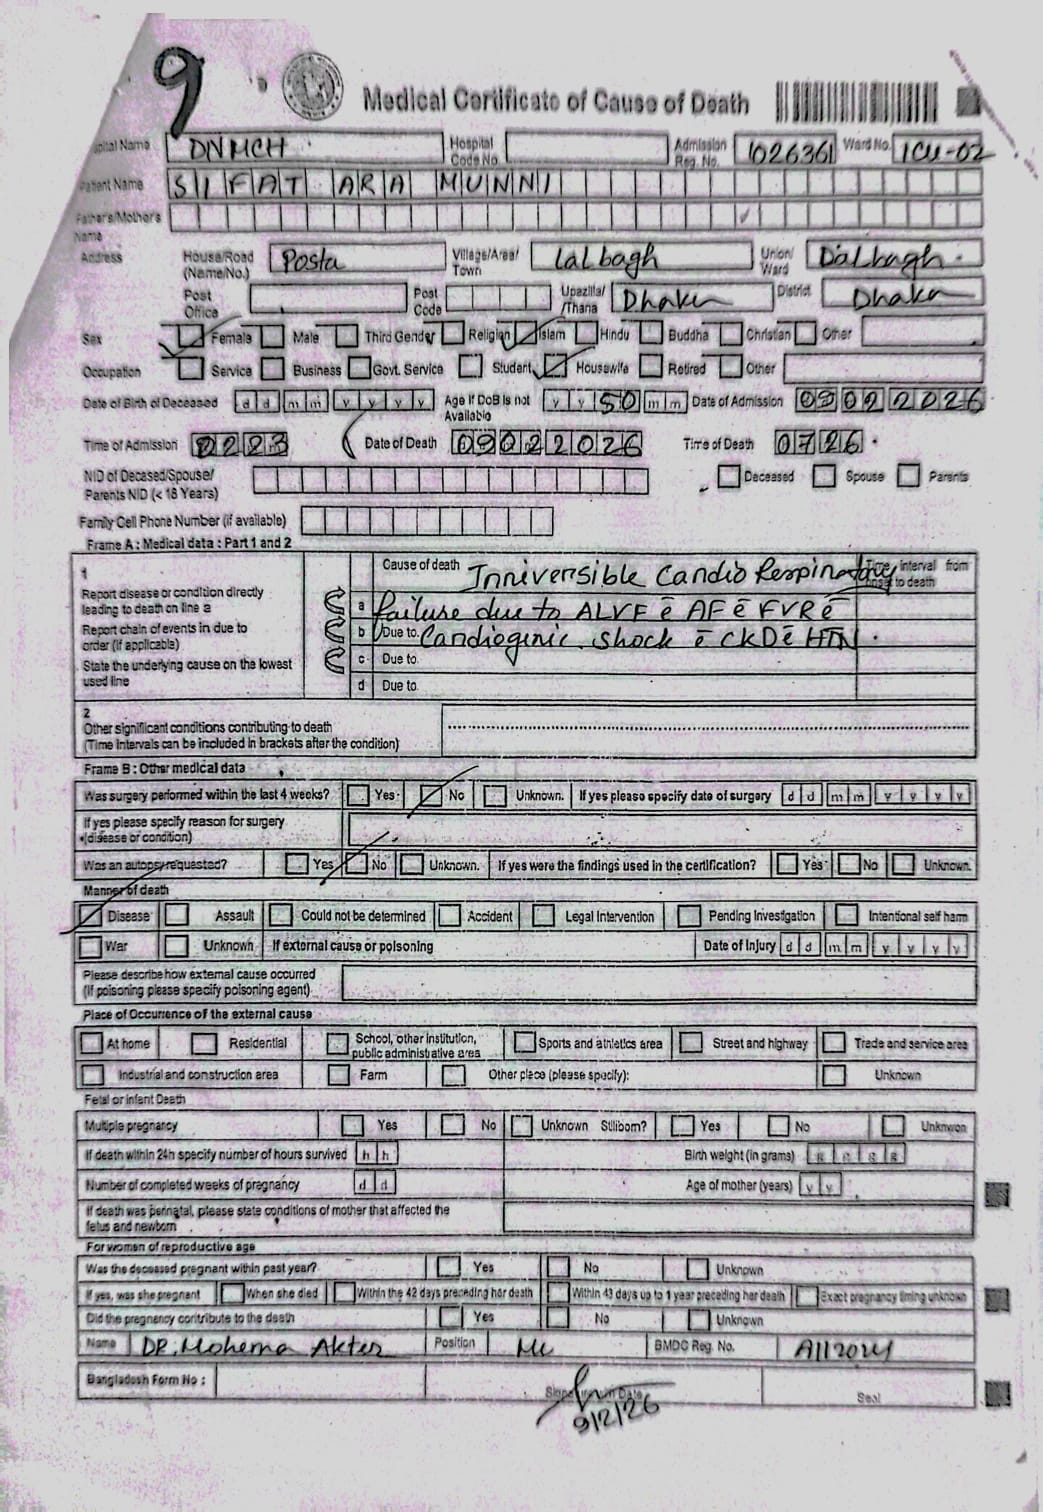 9
Medical Certificate of Cause of Death
pital Name DNMCH Hospital Code No. Admission Reg. No. 1026361 Ward No. ICU-02
Patient Name SIFAT ARA MUNNI
Father's/Mother's Name
Address House/Road (Name/No.) Posta Village/Area/Town Lalbagh Union/Ward Dalbagh.
Post Office Post Code Upazilla/Thana Dhaka District Dhaka
Sex Female Male Third Gender Religion Islam Hindu Buddha Christian Other
Occupation Service Business Govt. Service Student Housewife Retired Other
Date of Birth of Deceased d d m m y y y y Age if DoB is not Available y y 50 m m Date of Admission 09022026
Time of Admission 0223 Date of Death 09022026 Time of Death 0726
NID of Deceased/Spouse/Parents NID (< 18 Years) Deceased Spouse Parents
Family Cell Phone Number (if available)
Frame A : Medical data : Part 1 and 2
1
Report disease or condition directly leading to death on line a
Report chain of events in due to order (if applicable)
State the underlying cause on the lowest used line
Cause of death Irriversible Cardio Respiratory Time interval from onset to death
a failure due to ALVF c̄ AF c̄ FVR c̄
b Due to. Cardiogenic shock c̄ CKD c̄ HTN.
c Due to
d Due to
2
Other significant conditions contributing to death
(Time intervals can be included in brackets after the condition)
Frame B : Other medical data
Was surgery performed within the last 4 weeks? Yes No Unknown. If yes please specify date of surgery d d m m y y y y
If yes please specify reason for surgery
(disease or condition)
Was an autopsy requested? Yes No Unknown. If yes were the findings used in the certification? Yes No Unknown.
Manner of death
Disease Assault Could not be determined Accident Legal Intervention Pending Investigation Intentional self harm
War Unknown If external cause or poisoning Date of Injury d d m m y y y y
Please describe how external cause occurred
(If poisoning please specify poisoning agent)
Place of Occurrence of the external cause
At home Residential School, other institution, public administrative area Sports and athletics area Street and highway Trade and service area
Industrial and construction area Farm Other place (please specify): Unknown
Fetal or infant Death
Multiple pregnancy Yes No Unknown Stillborn? Yes No Unknwon
If death within 24h specify number of hours survived h h Birth weight (in grams) g g g g
Number of completed weeks of pregnancy d d Age of mother (years) y y
If death was perinatal, please state conditions of mother that affected the
fetus and newborn
For women of reproductive age
Was the deceased pregnant within past year? Yes No Unknown
If yes, was she pregnant When she died Within the 42 days preceding her death Within 43 days up to 1 year preceding her death Exact pregnancy timing unknown
Did the pregnancy contribute to the death Yes No Unknown
Name DR. Mohema Akter Position MU BMDC Reg. No.
Bangladesh Form No : Date Seal
9/2/26